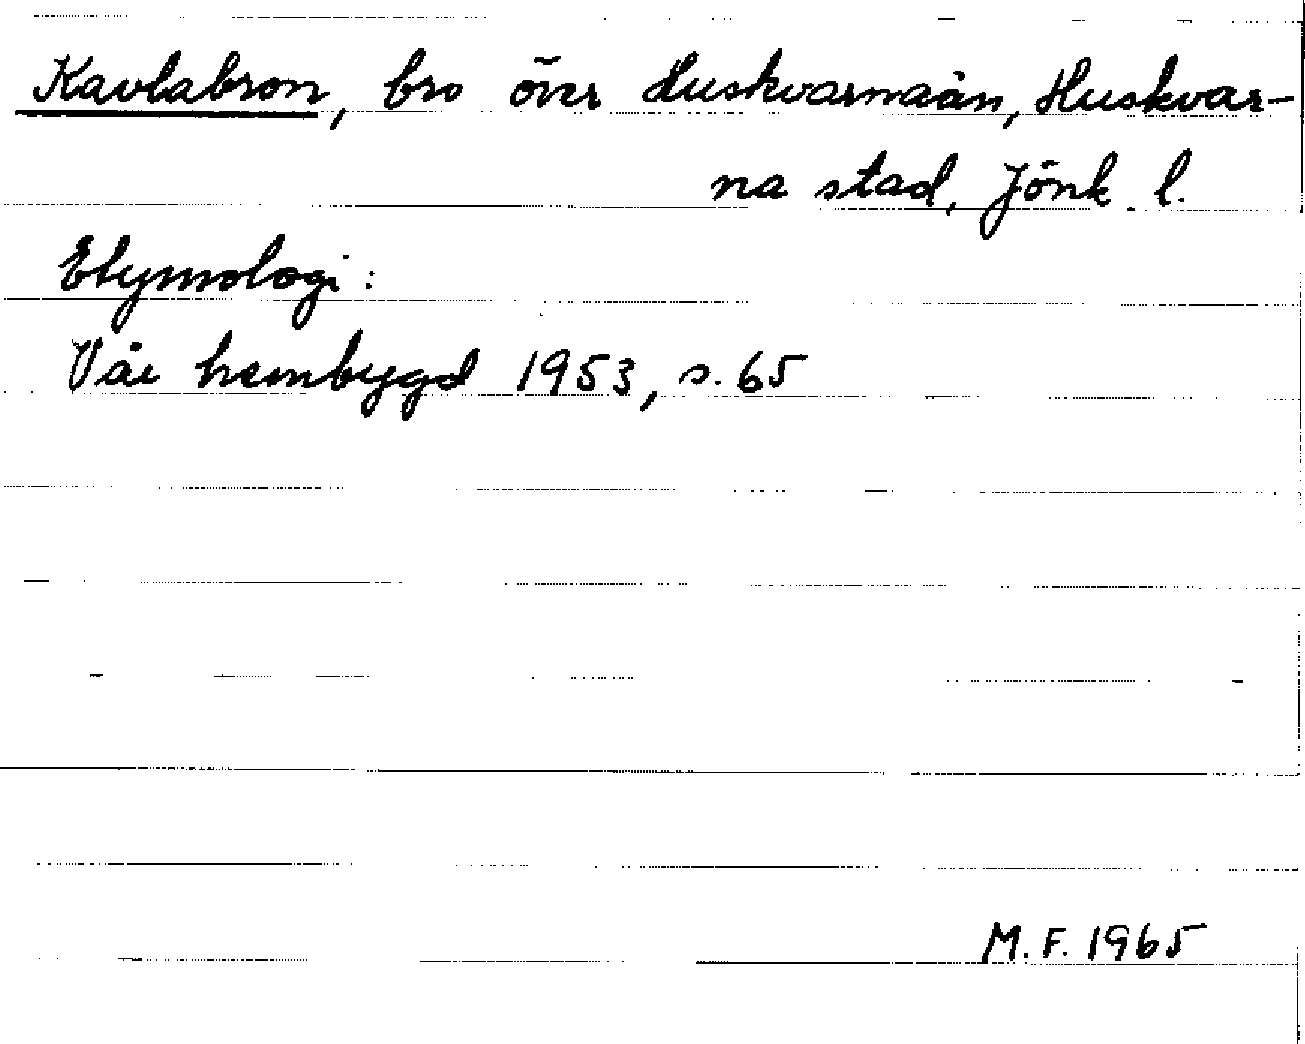 Kavlabron, bro över Huskvarnaån, Huskvar-
na stad, Jönk. l.
Etymologi:
Vår hembygd 1953, s. 65
M.F. 1965